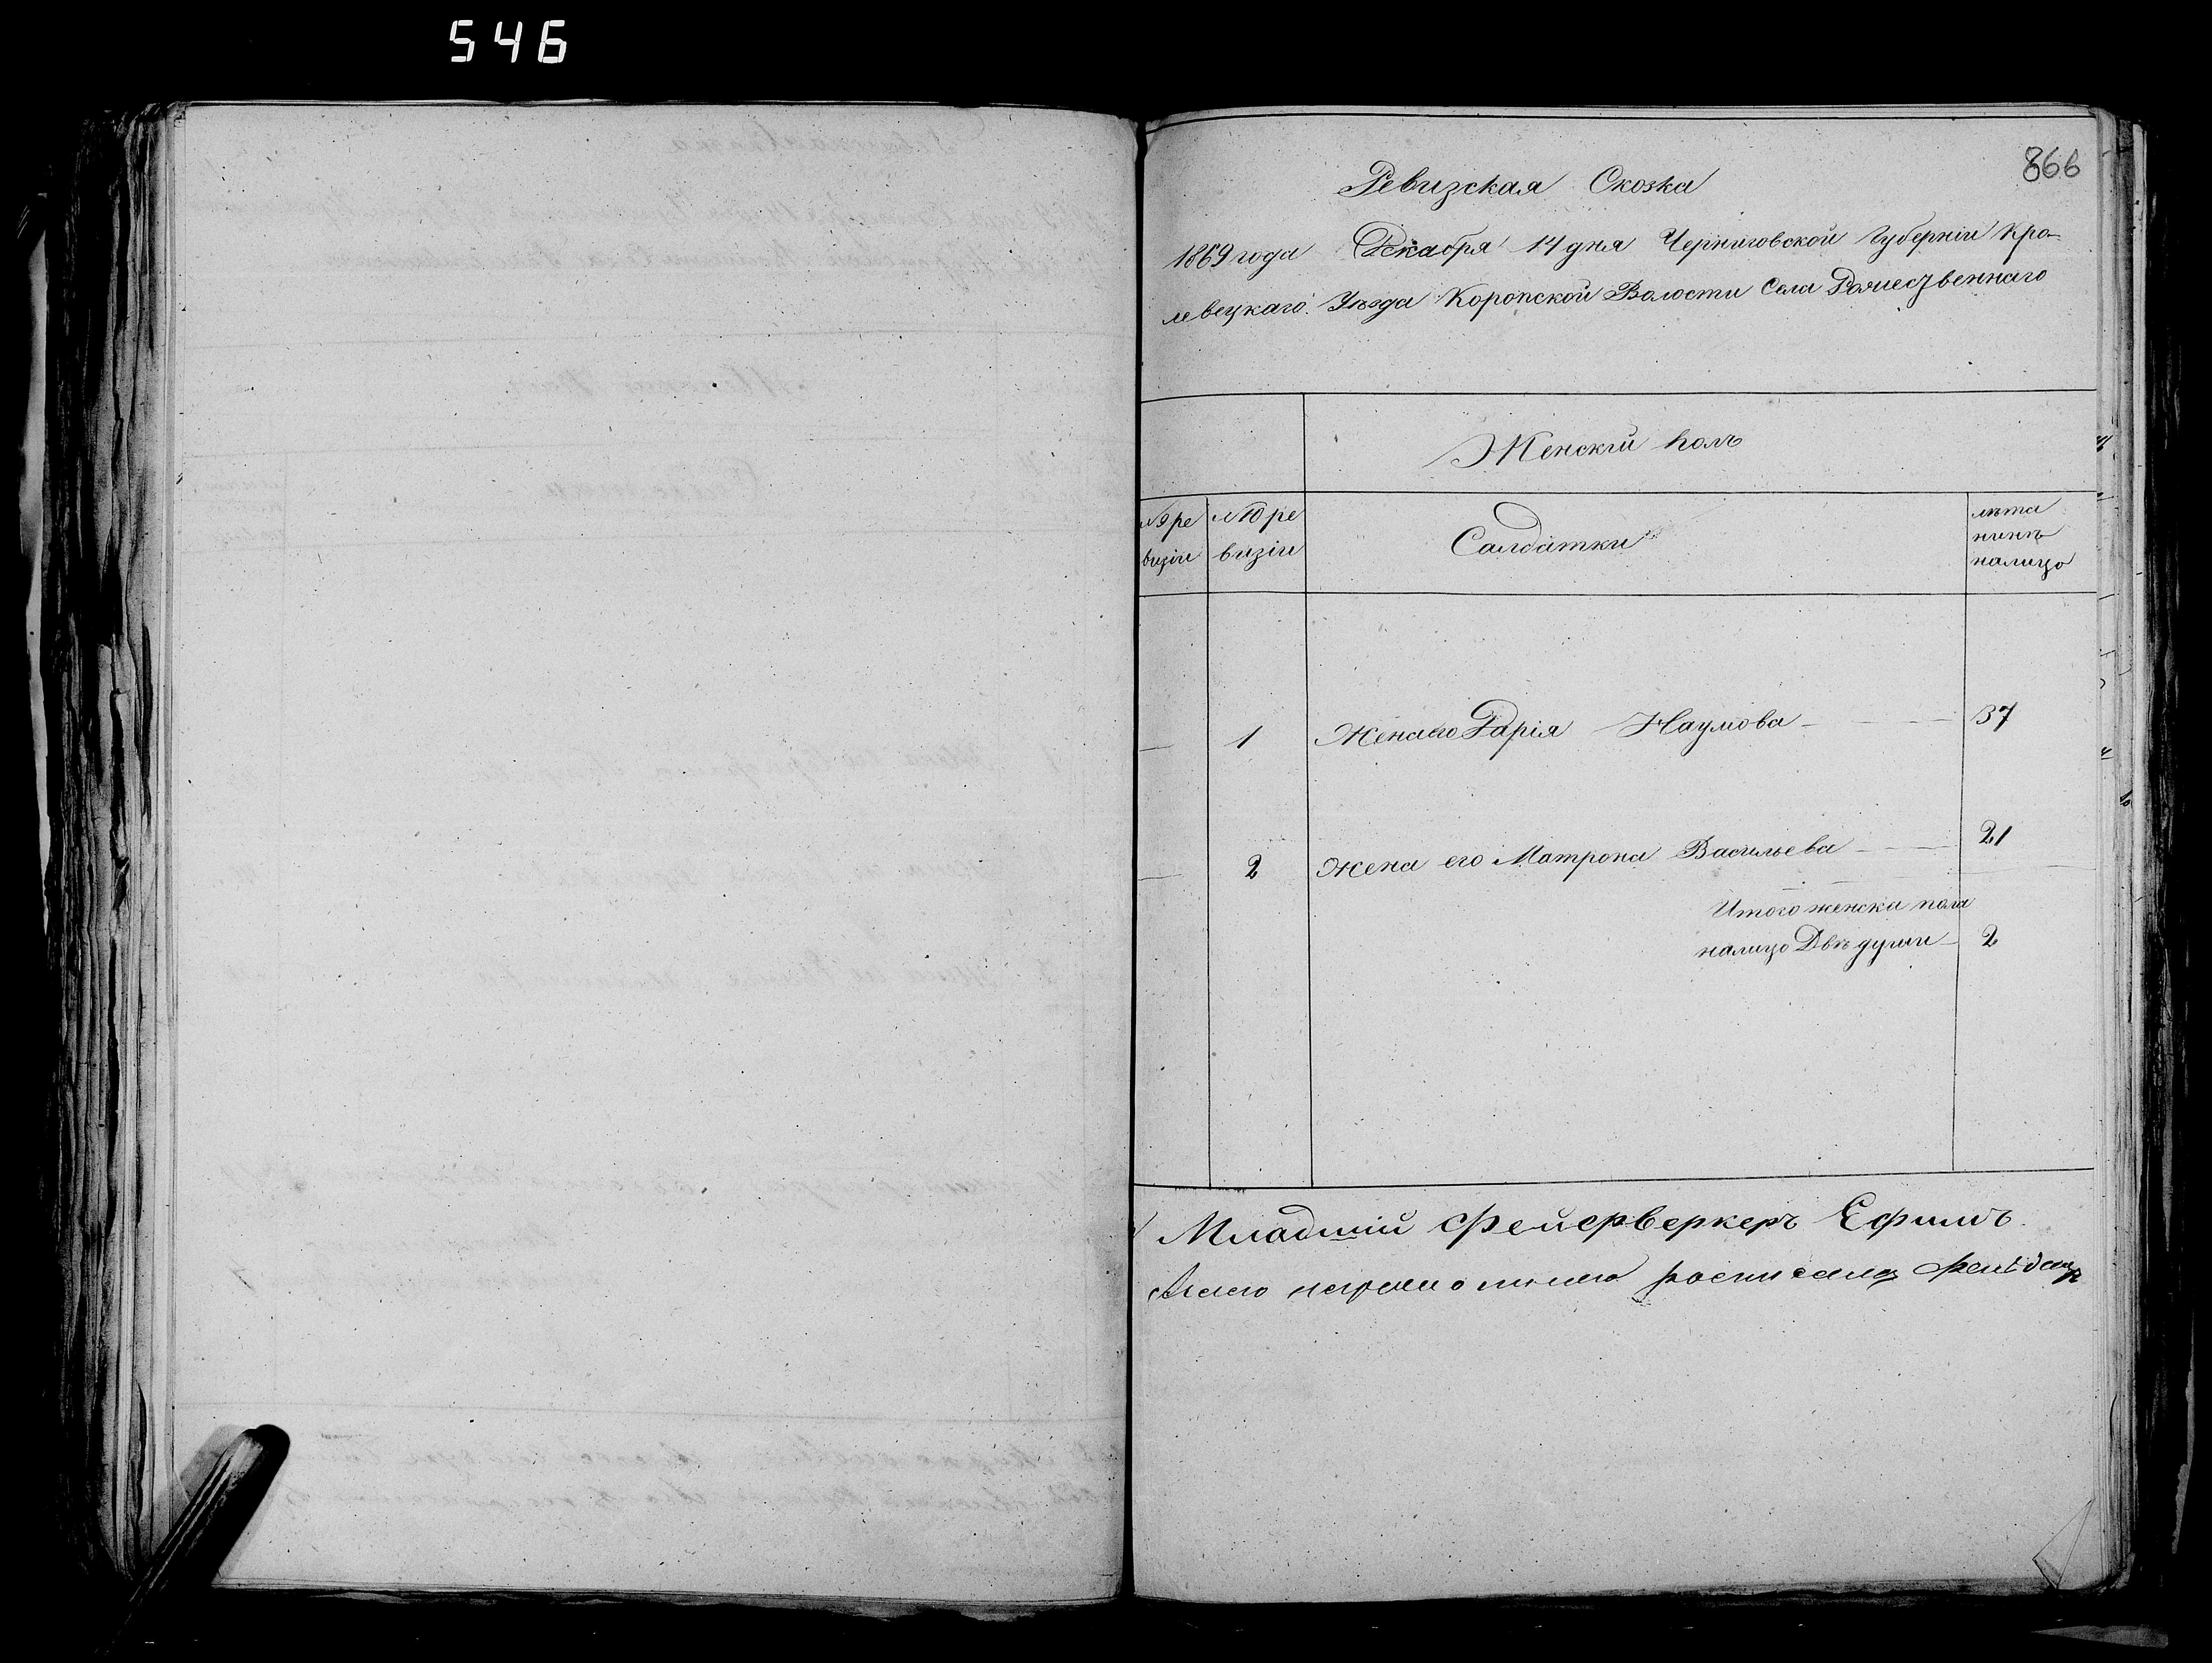 546
866
Ревизская Скозка
1869 года Декабря 14 дня Черниговской Губерніи Кро-
левецкаго Уѣзда Коропской Волости Села Рожесственнаго
Женскій полъ
№ 9 ре
визіи
№ 10 ре
визіи
Салдатки
лѣта
нинѣ
налицо
1 Жена его Дарія Наумова 37
2 Жена его Матрона Васильева 21
Итого женска пола
налицо Двѣ души 2
Младшій Фейерверкеръ Ефимъ
неграмотнаго росписалъ